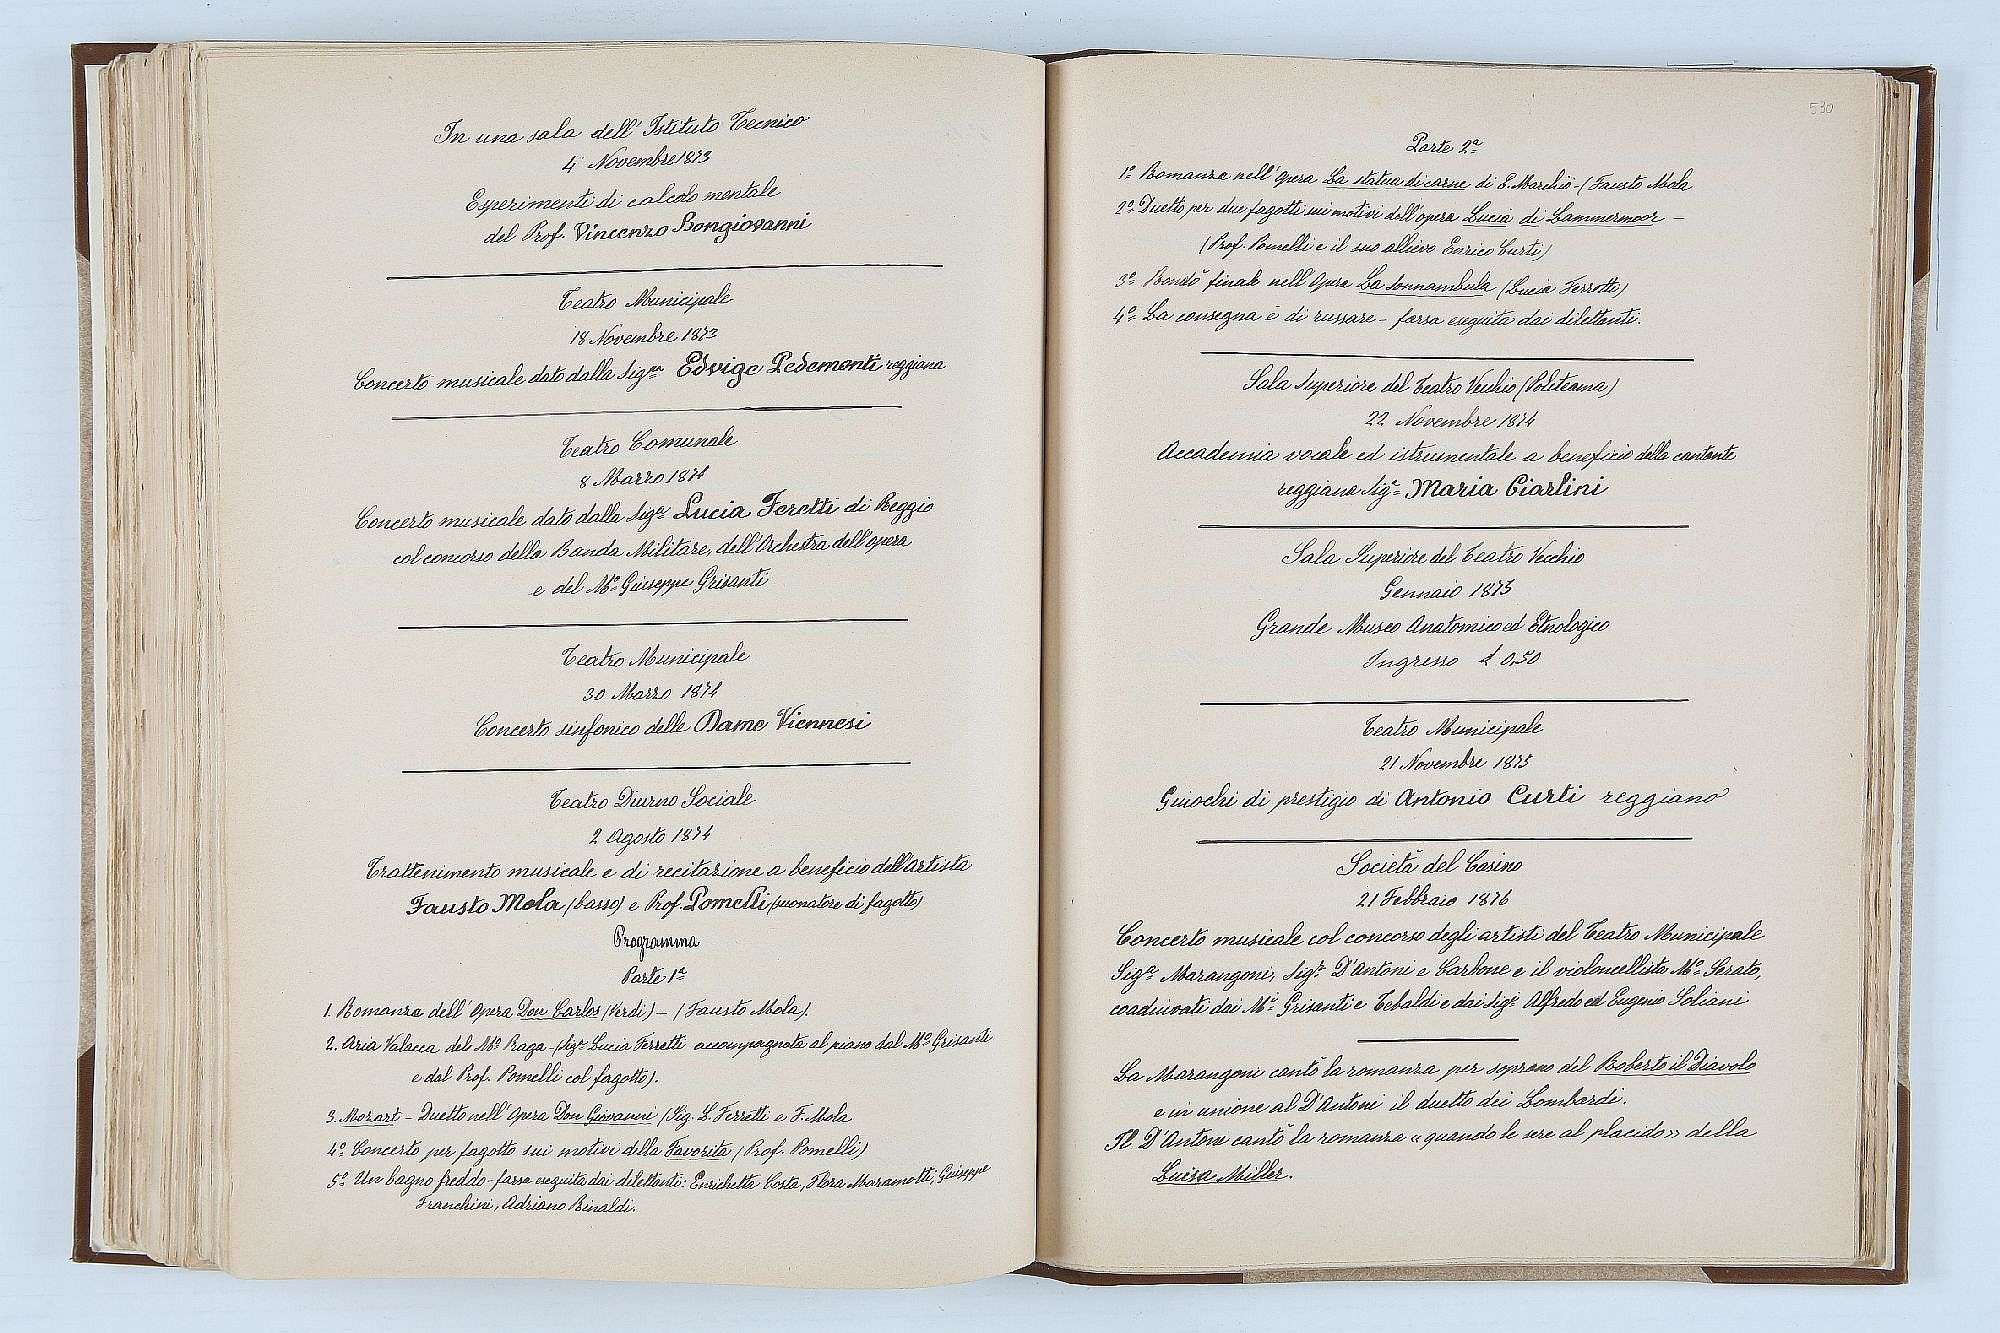 In una sala dell' Istituto Tecnico
4 Novembre 1873
Esperimenti di calcolo mentale
del Prof. Vincenzo Bongiovanni
Teatro Municipale
18 Novembre 1873
Concerto musicale dato dalla Sigra Edvige Pedemonti reggiana
Teatro Comunale
8 Marzo 1874
Concerto musicale dato dalla Sigra Lucia Feretti di Reggio
col concorso della Banda Militare, dell'Orchestra dell'opera
e del Mo Giuseppe Grisanti
Teatro Municipale
30 Marzo 1874
Concerto sinfonico delle Dame Viennesi
Teatro Diurno Sociale
2 Agosto 1874
Trattenimento musicale e di recitazione a beneficio dell'artista
Fausto Mola (basso) e Prof. Pomelli (suonatore di fagotto)
Programma
Parte 1a
1. Romanza dell' Opera Don Carlos (Verdi) - (Fausto Mola).
2. Aria Valacca del Mo Braga - (Sigra Lucia Ferretti accompagnata al piano dal Mo Grisanti
e dal Prof. Pomelli col fagotto).
3. Mozart - Duetto nell' Opera Don Giovanni (Sig. L. Ferretti e F. Mola
4o Concerto per fagotto sui motivi della Favorita (Prof. Pomelli)
5o Un bagno freddo - farsa eseguita dai dilettanti: Enrichetta Costa, Flora Maramotti, Giuseppe
Franchini, Adriano Rinaldi.
530
Parte 2a
1o Romanza nell' opera La statua di carne di F. Marchiò - (Fausto Mola
2o Duetto per due fagotti sui motivi dell'opera Lucia di Lammermoor -
(Prof. Pomelli e il suo allievo Enrico Curti)
3o Rondò finale nell' Opera La sonnambula (Lucia Ferretti)
4o La consegna è di russare - farsa eseguita dai dilettanti.
Sala Superiore del Teatro Vecchio (Politeama)
22 Novembre 1874
Accademia vocale ed istrumentale a beneficio della cantante
reggiana Siga Maria Ciarlini
Sala Superiore del Teatro Vecchio
Gennaio 1875
Grande Museo Anatomico ed Etnologico
Ingresso £ 0,50
Teatro Municipale
21 Novembre 1875
Giuochi di prestigio di Antonio Curti reggiano
Società del Casino
21 Febbraio 1876
Concerto musicale col concorso degli artisti del Teatro Municipale
Sigra Marangoni, Sigri D'Antoni e Carbone e il violoncellista Mo Serato,
coadiuvati dai Mi Grisanti e Tebaldi e dai Sigi Alfredo ed Eugenio Soliani
La Marangoni cantò la romanza per soprano del Roberto il Diavolo
e in unione al D'Antoni il duetto dei Lombardi.
Il D'Antoni cantò la romanza «quando le sere al placido» della
Luisa Miller.